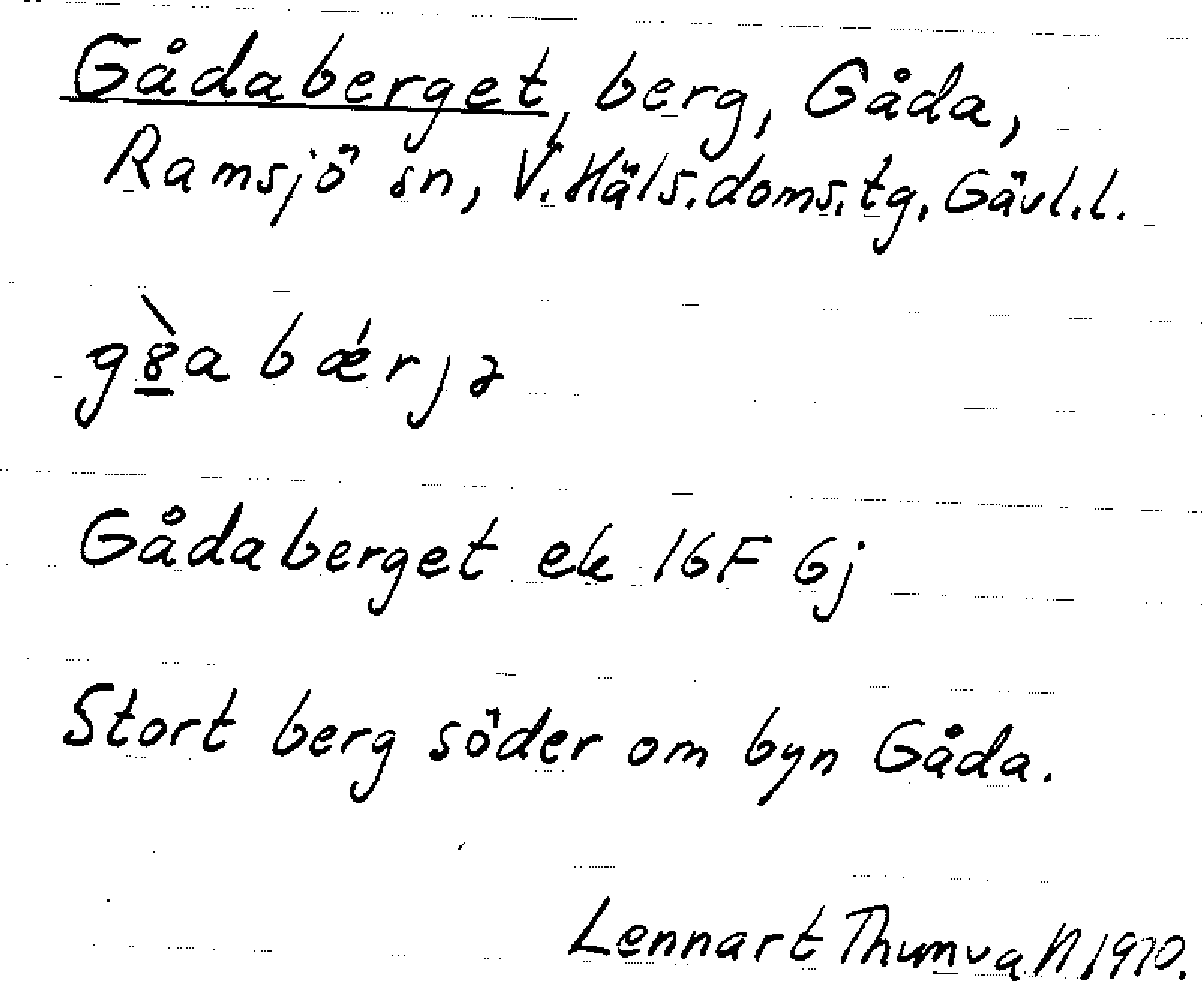 Gådaberget, berg, Gåda,
Ramsjö sn, V. Häls. doms. tg. Gävl. l.
g8̲̀a bǽrjə
Gådaberget ek 16F 6j
Stort berg söder om byn Gåda.
Lennart Thumvall 1970.